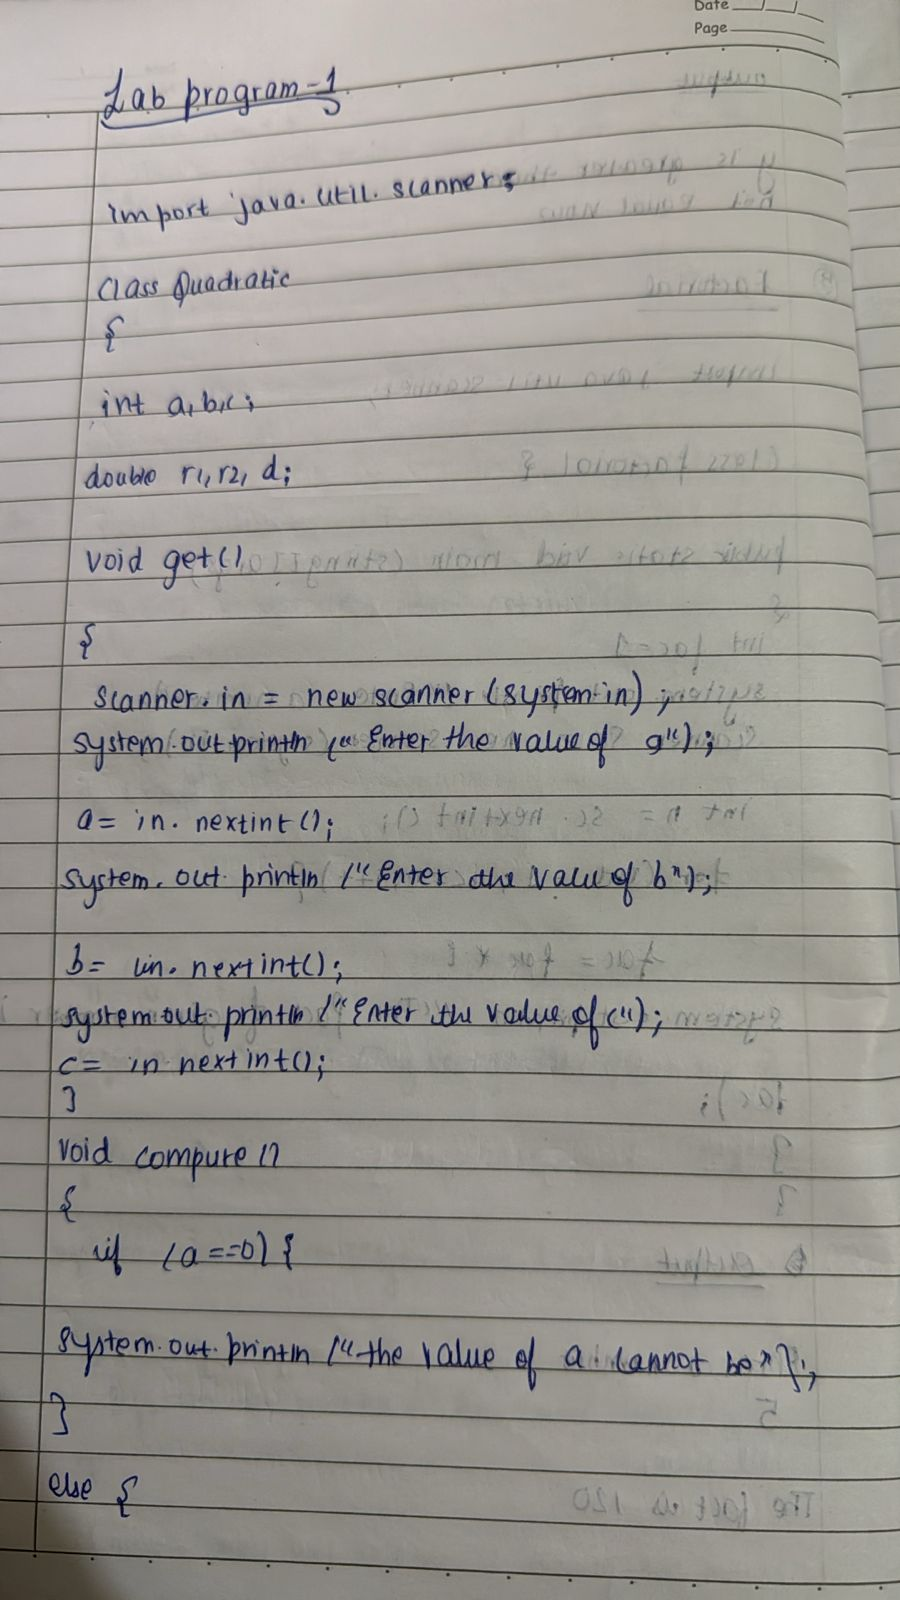 Date
Page
Lab program-1
import java.util.scanner;
class Quadratic
{
int a,b,c;
double r1, r2, d;
void get()
{
scanner.in = new scanner (system.in);
system.out println (" Enter the value of a");
a= in. nextint();
system. out. println (" Enter the value of b");
b= in. nextint();
system.out println (" Enter the value of c");
c= in nextint();
}
void compute ()
{
if (a==0) {
system.out.println ("the value of a cannot be"};
}
else {